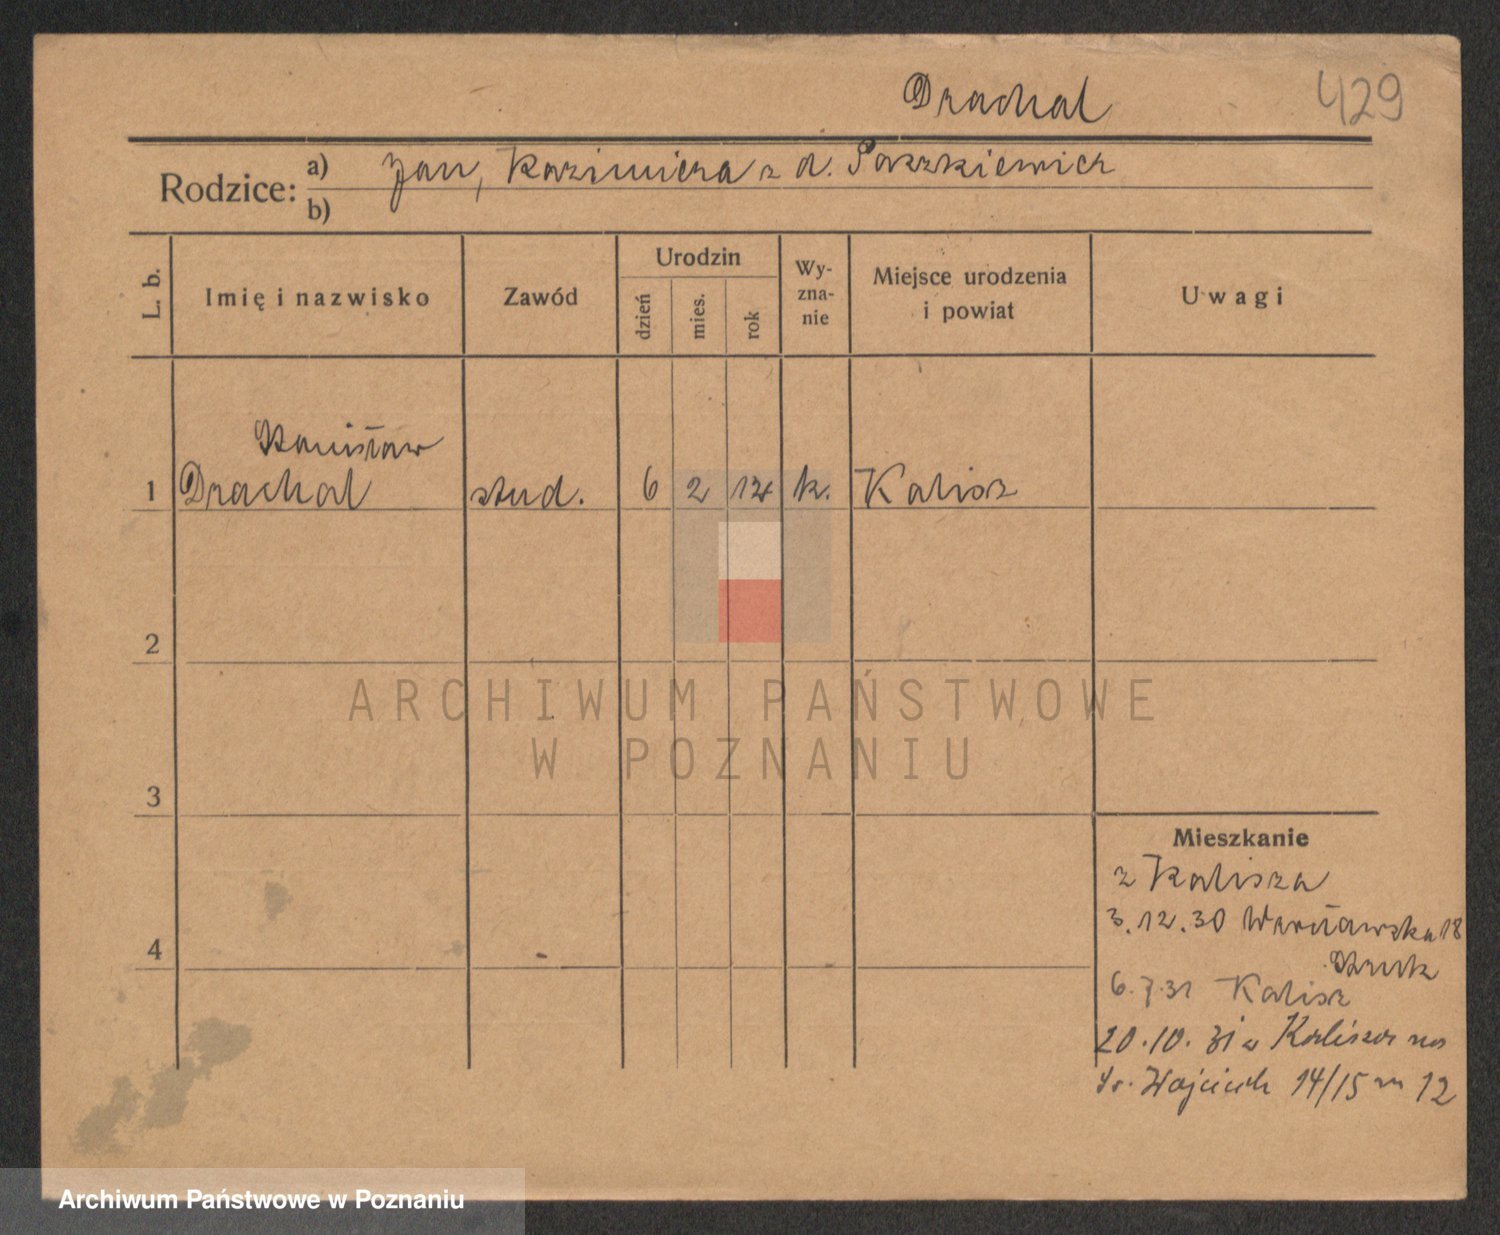 Drachal
429
Rodzice:
a) Jan, Kazimiera z d. Paszkiewicz
b)
L. b.
Imię i nazwisko
Zawód
Urodzin
dzień
mies.
rok
Wy-
zna-
nie
Miejsce urodzenia
i powiat
Uwagi
Stanisław
1 Drachal stud. 6 2 12 k. Kalisz
2
3
4
Mieszkanie
z Kalisza
3.12.30 Warszawska 18
6.7.31 Kalisz
20.10.31 z Kalisza na
Św. Wojciech 14/15 m 12
ARCHIWUM PAŃSTWOWE
W POZNANIU
Archiwum Państwowe w Poznaniu